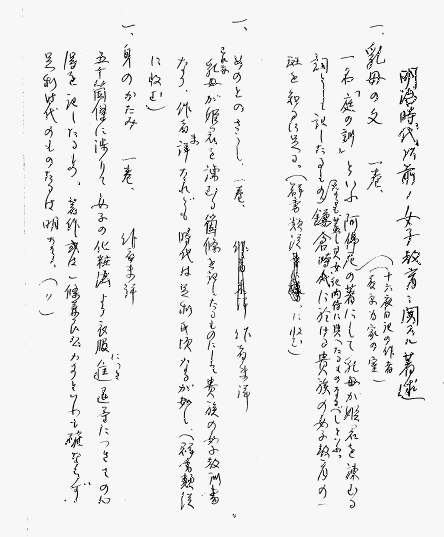 明治時代以前ノ女子教育ニ関スル著述
一、乳母の文 一巻、
(十六夜日記の作者
為家の室)
一名「庭の訓」といふ 阿佛尼の著にして乳母が姫君を諫むる
詞を記したるもの、鎌倉時代に於ける貴族の女子教育の一
斑を知るに足る。(群書類従 に収む)
一、めのとのさうし、一巻、 作者未詳
乳母が姫君を諫むる箇條を記したるものにして貴族の女子教訓書
なり、作者未詳なれども時代は足利氏頃なるが如し、(群書類従
に収む)
一、身のかたみ 一巻、 作者未詳
五十箇條に渉りて女子の化粧法より衣服 進退等につきての心
得を記したるもの、著作或は一條兼良公なりといふも確ならず
足利時代のものたるは明かなり、(〃)